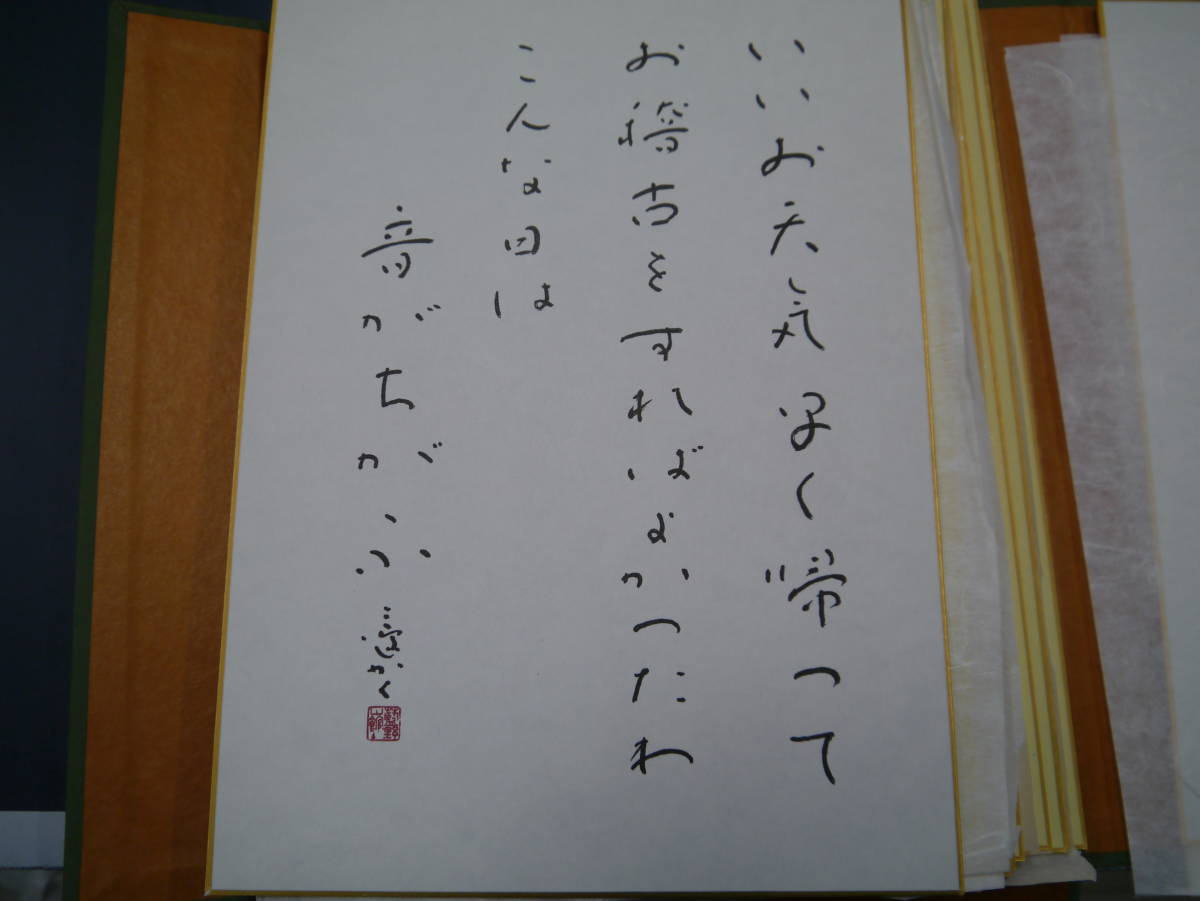 いいお天気早く帰つて
お稽古をすればよかつたわ
こんな日は
音がちがふ